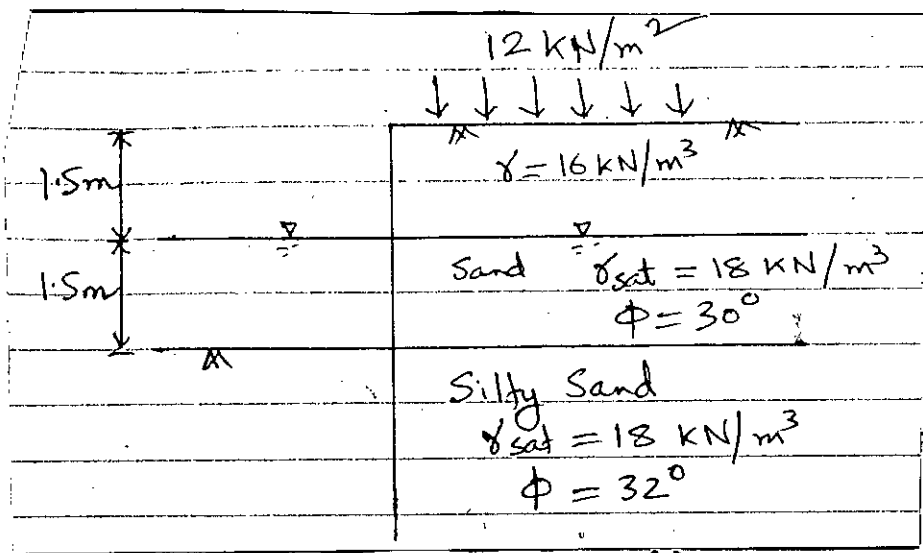 12 KN/m²
γ = 16 KN/m³
1.5m
1.5m
Sand γsat = 18 KN/m³
φ = 30°
Silty Sand
γsat = 18 KN/m³
φ = 32°